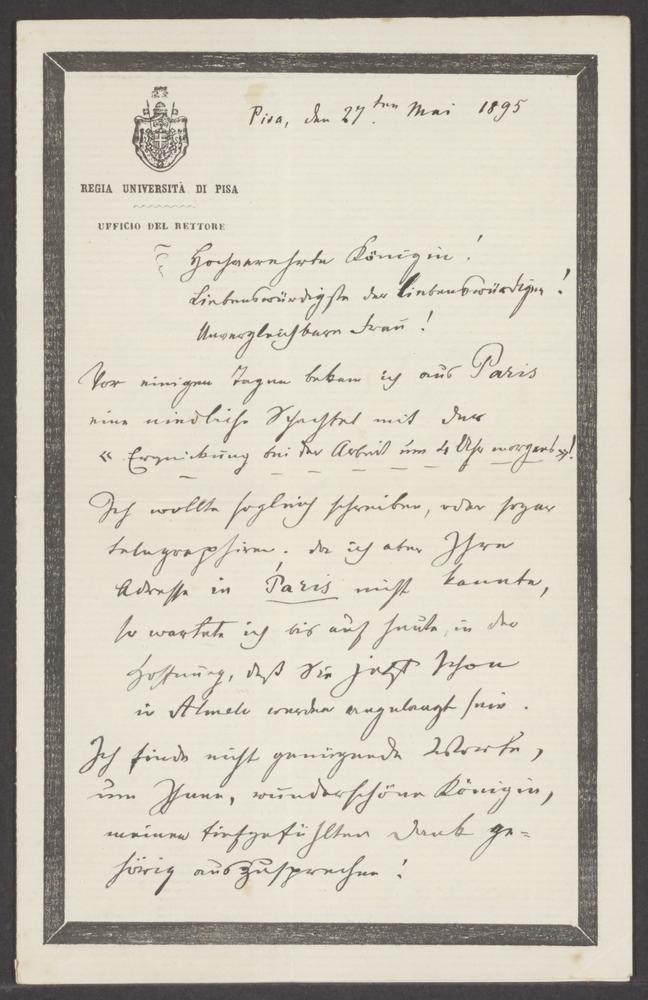 Pisa, den 27ten Mai 1895
REGIA UNIVERSITÀ DI PISA
UFFICIO DEL RETTORE
Hochverehrte Königin!
Liebenswürdigste der Liebenswürdigen!
Unvergleichbare Frau!
Vor einigen Tagen bekam ich aus Paris
eine niedliche Schachtel mit der
« Erquickung bei der Arbeit um 4 Uhr morgens »!
Ich wollte sogleich schreiben, oder sogar
telegraphiren. da ich aber Ihre
Adresse in Paris nicht kannte,
so wartete ich bis auf heute, in der
Hoffnung, daß Sie jetzt schon
in Almelo werden angelangt sein.
Ich finde nicht genügende Worte,
um Ihnen, wunderschöne Königin,
meinen tiefgefühlten Dank ge=
hörig auszusprechen!